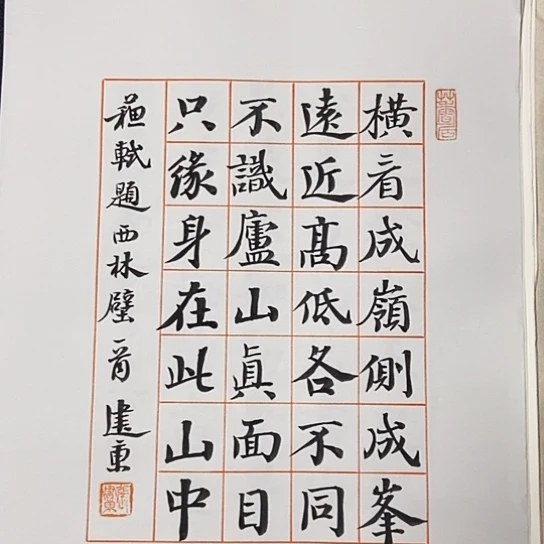 橫看成嶺側成峯
遠近高低各不同
不識廬山眞面目
只緣身在此山中
蘇軾題西林壁一首 建東